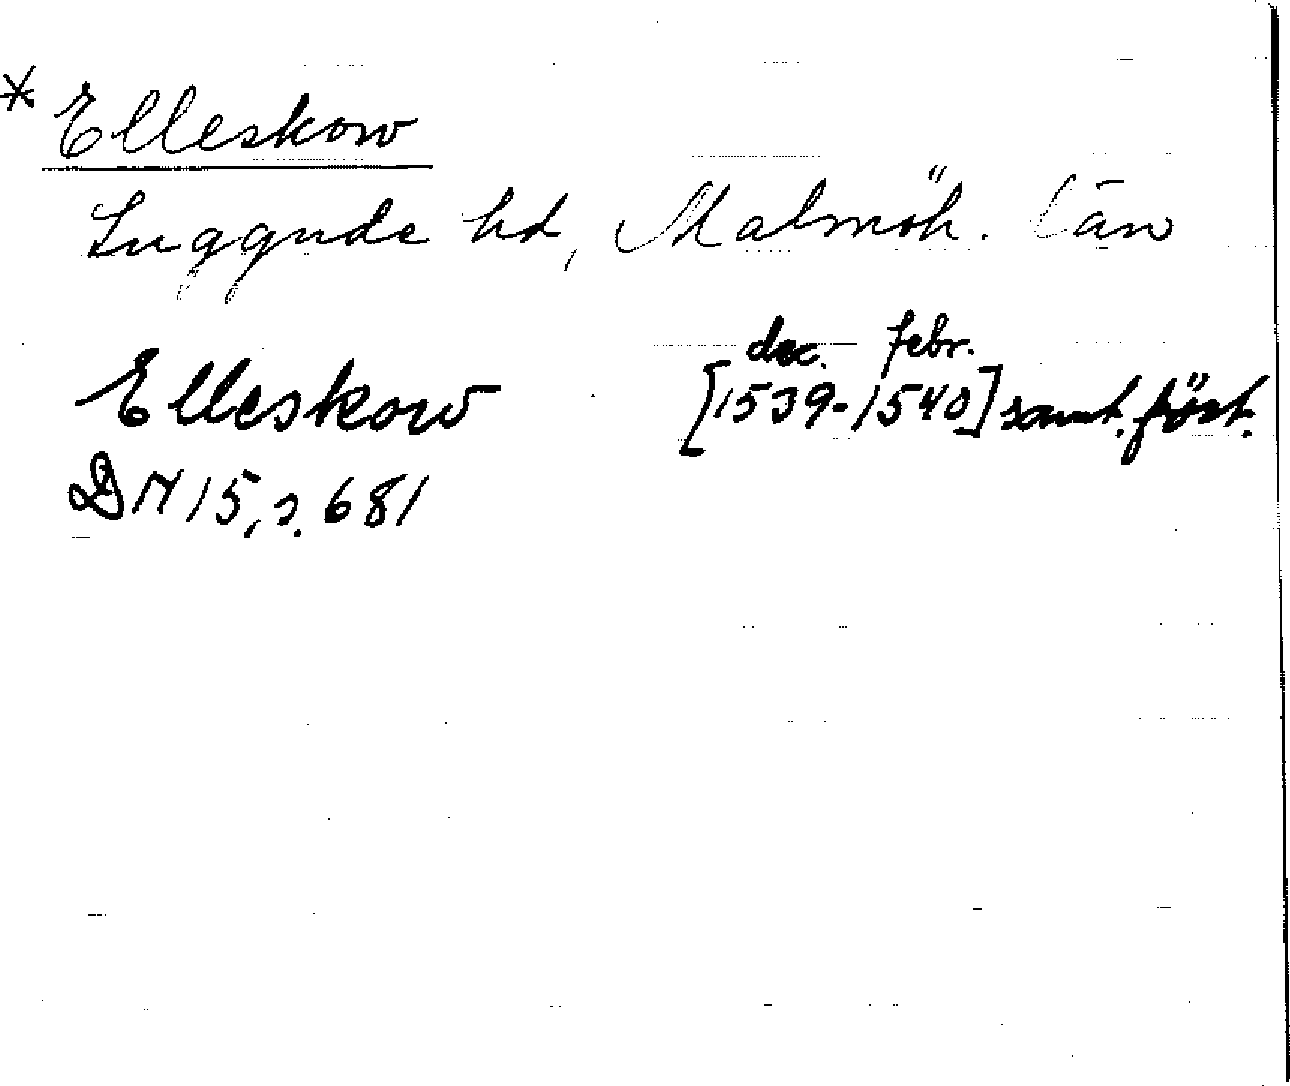 * Elleskow
Luggude hd, Malmöh. län
Elleskow [dec. 1539 - febr. 1540] samt. först.
DN 15, s. 681